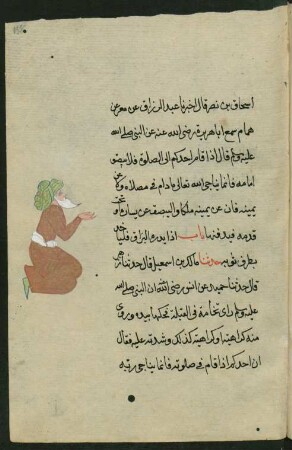 اسحاق بن نصر قال اخبرنا عبد الرزاق عن معمر عن
همام سمع ابا هريرة رضى الله عنه عن النبى صلى الله
عليه وسلم قال اذا قام احدكم الى الصلوة فلا يبصق
امامه فانما يناجى الله تعالى ما دام فى مصلاه ولا عن
يمينه فان عن يمينه ملكا وليبصق عن يساره او تحت
قدمه فيدفنها باب اذا بدره البزاق فلياخذ
بطرف ثوبه حدثنا مالك بن اسمعيل قال حدثنا زهير
قال حدثنا حميد عن انس رضى الله عنه ان النبى صلى الله
عليه وسلم راى نخامة فى القبلة فحكها بيده وروى
منه كراهية او كراهيته لذلك وشدته عليه فقال
ان احدكم اذا قام فى صلوته فانما يناجى ربه